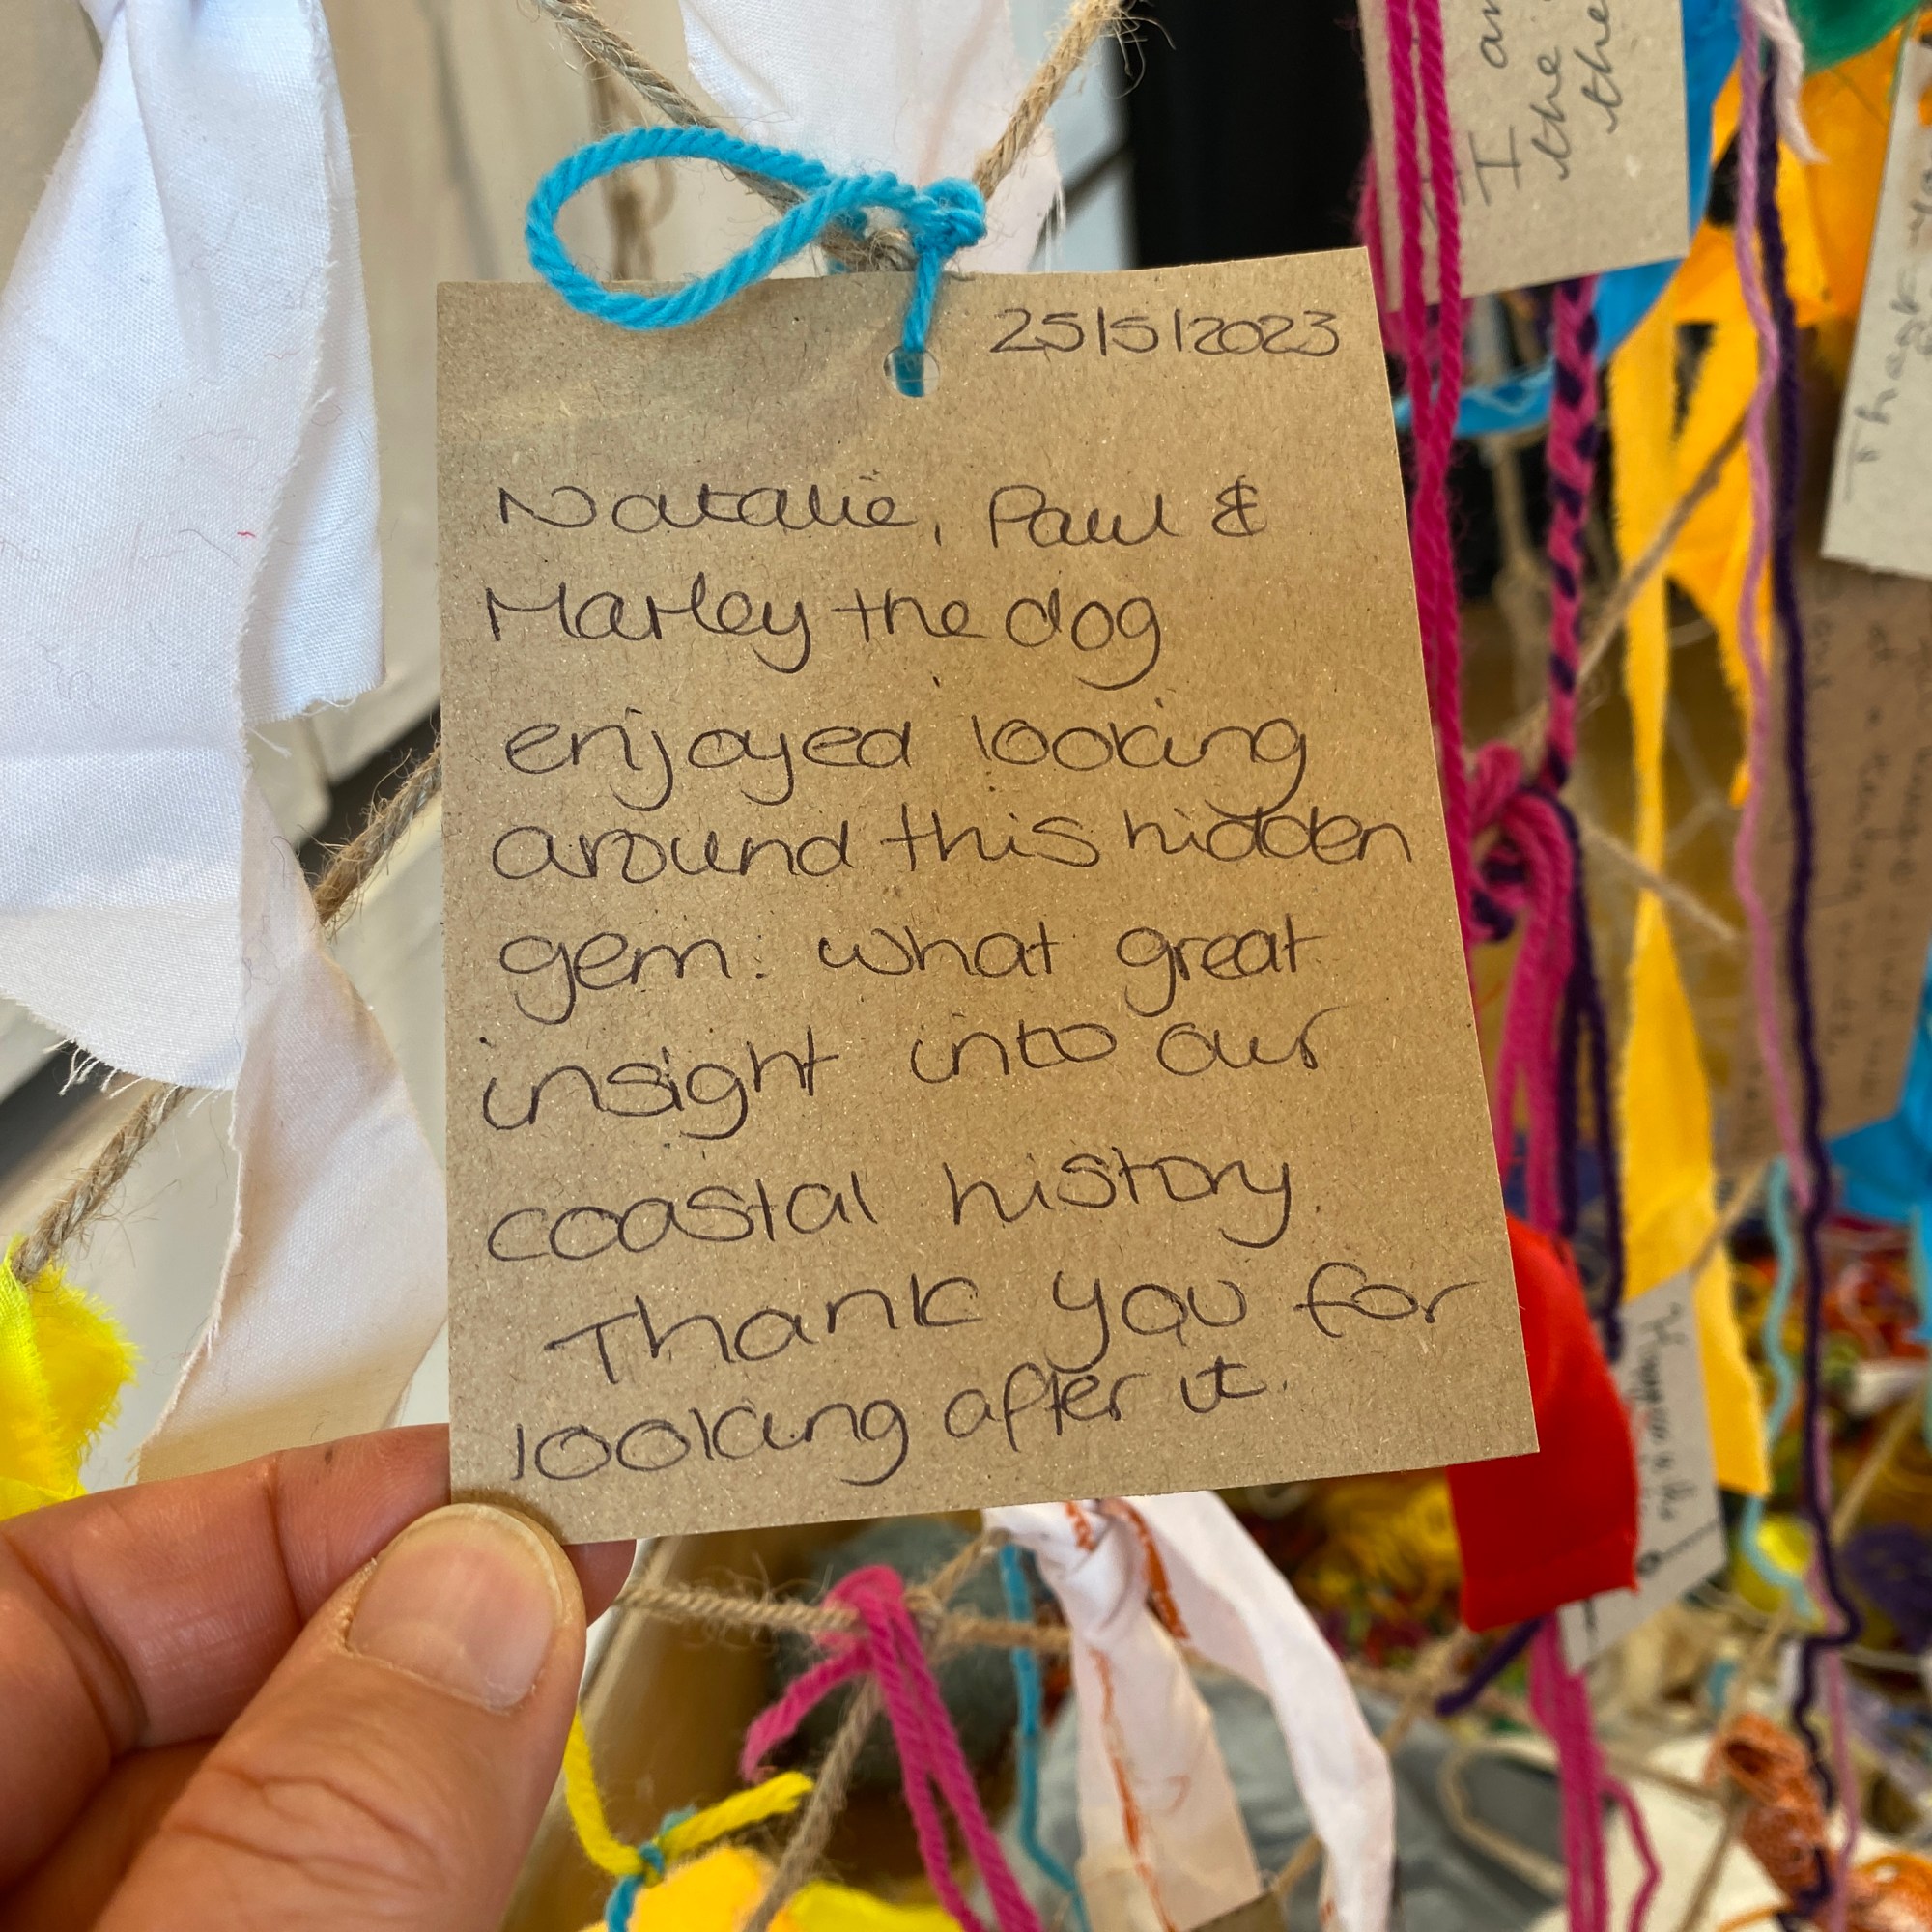 25/5/2023
Natalie, Paul &
Marley the dog
enjoyed looking
around this hidden
gem. what great
insight into our
coastal history.
Thank you for
looking after it.
I am
the
the
Thank